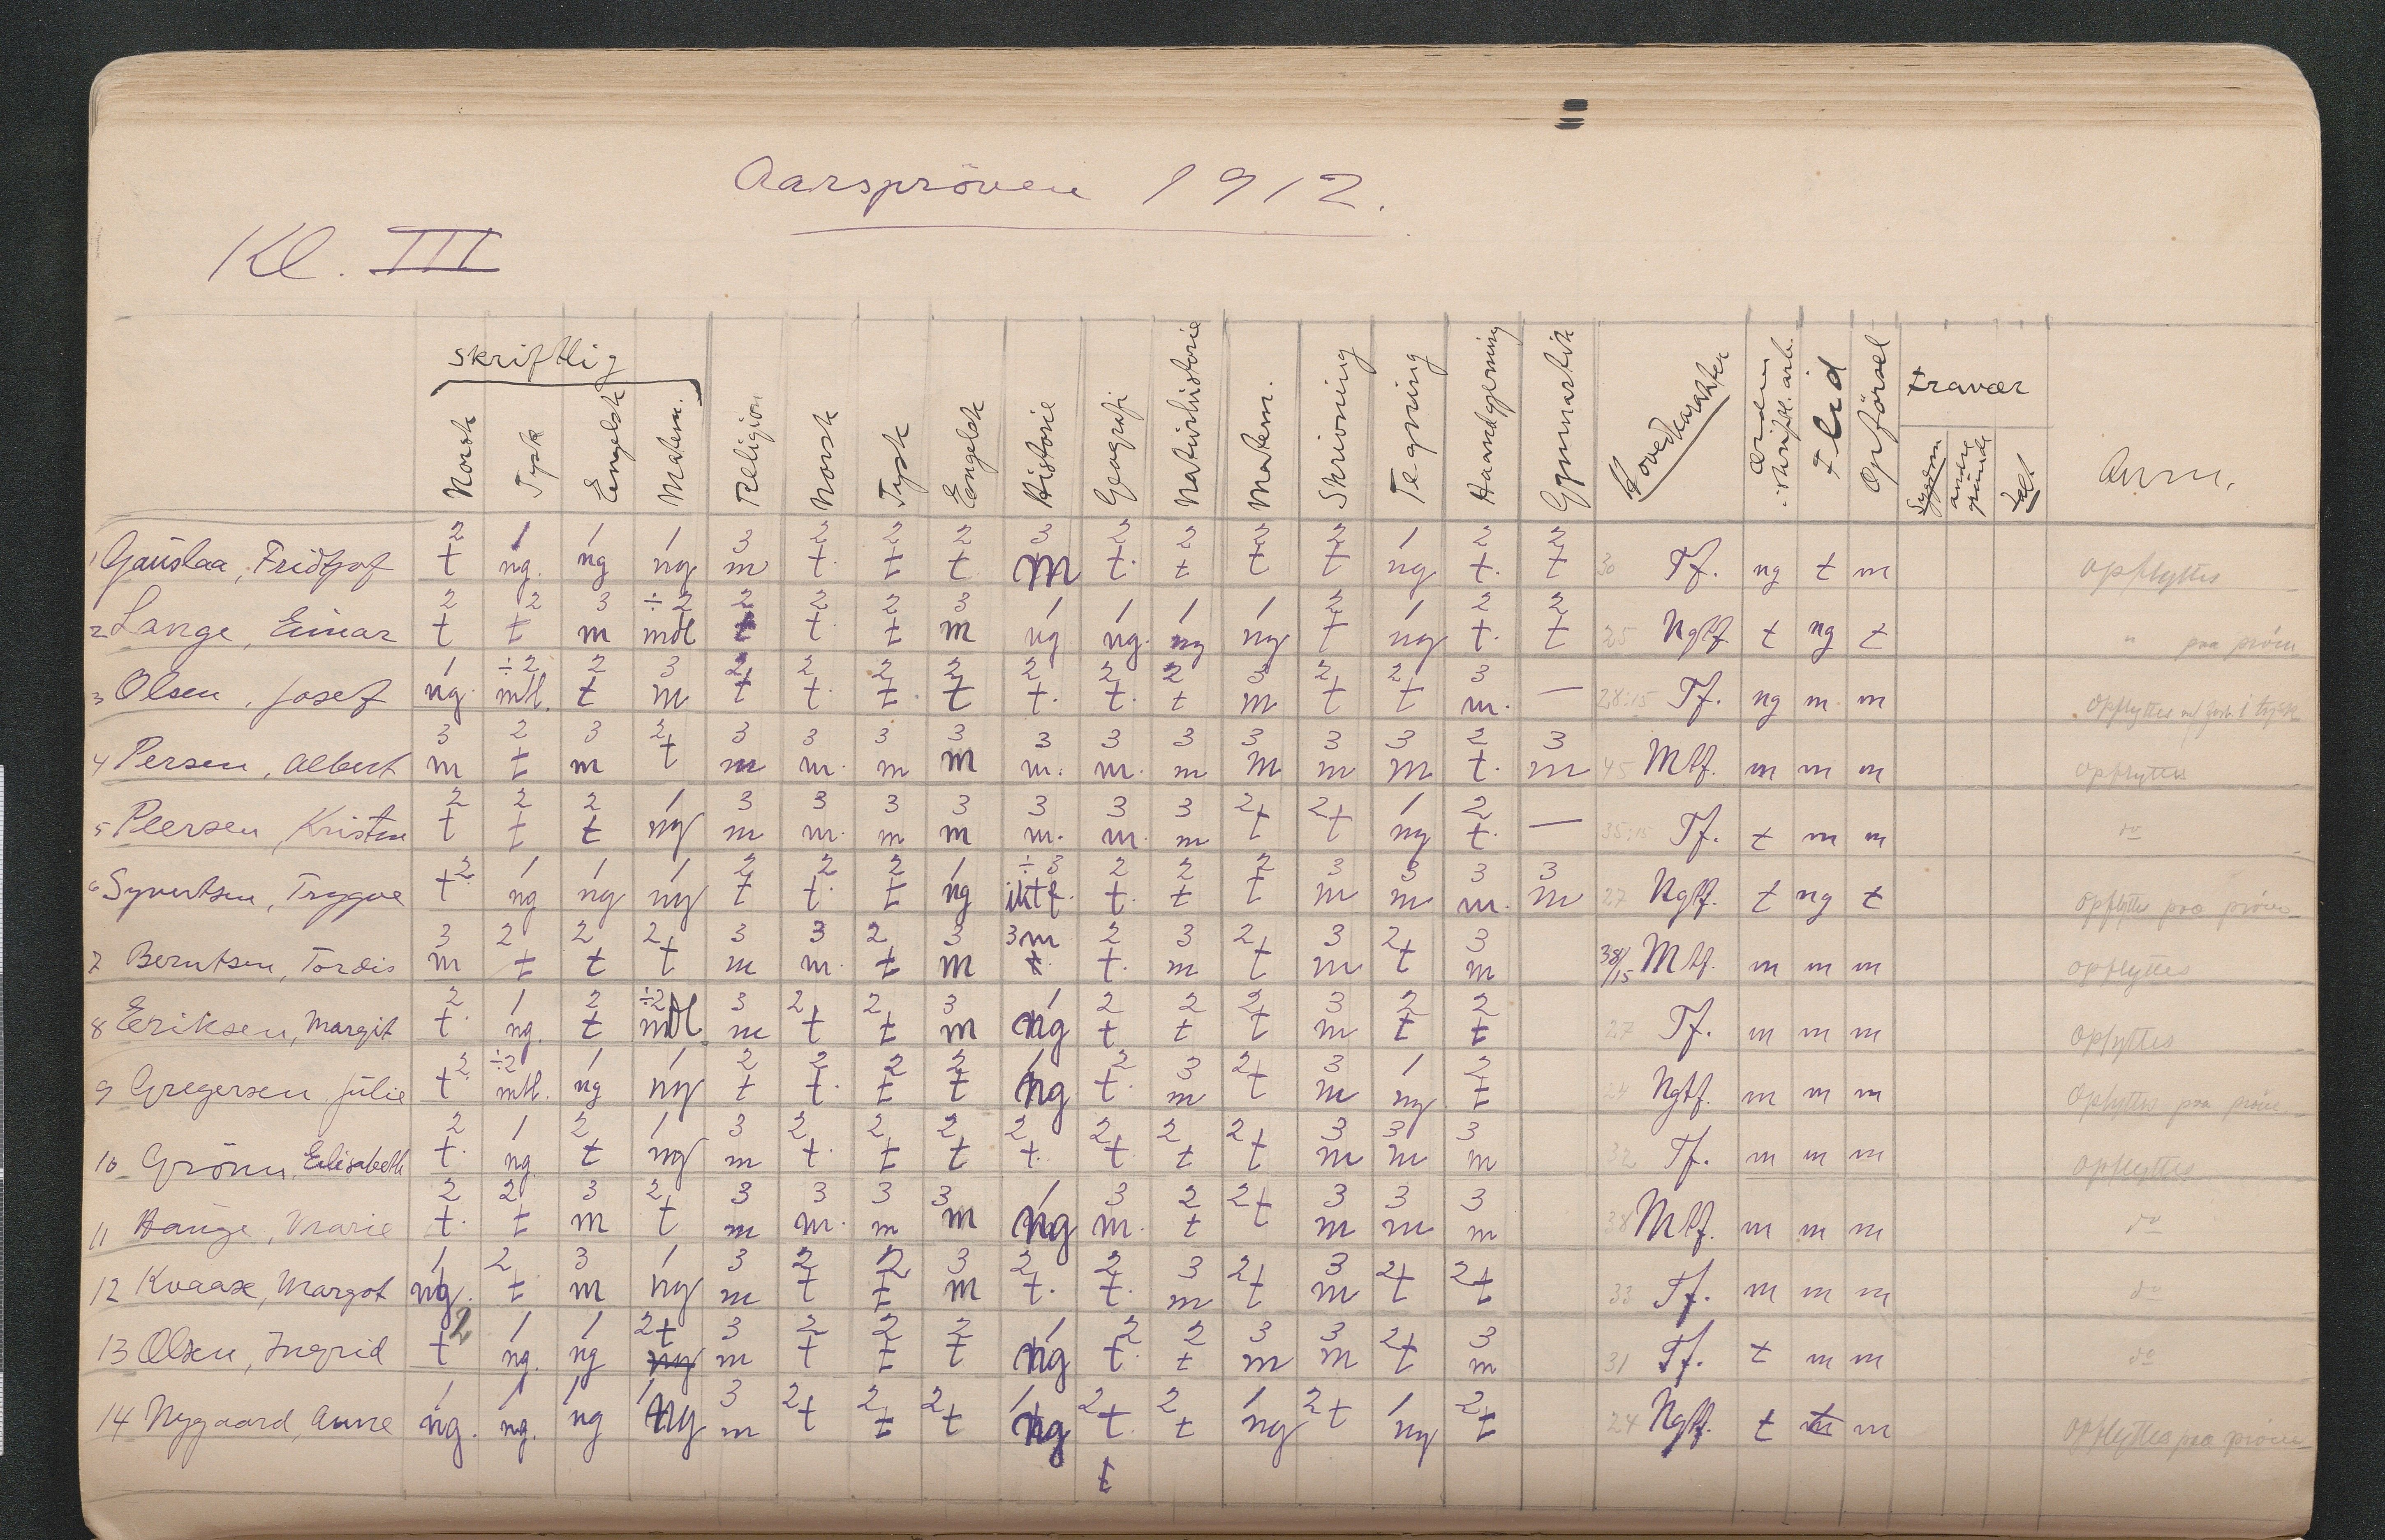 Aarspröven 1912.
Kl. III
skriftlig
Norsk Tysk Engelsk Matem. Religion Norsk Tysk Engelsk Historie Geografi Naturhistorie Matem. Skrivning Tegning Haandgjerning Gymnastik Hovedkarakter Orden i skriftl. arb. Flid Opförsel Fravær Sygdom andre grunde Anm.
2 1 1 1 3 2 2 2 3 2 2 2 2 1 2 2
1 Gauslaa, Fridtjof t ng. ng ng m t. t t m t. t t t ng t. t 30 Tf. ng t m opflyttes
2 2 3 ÷2 2 2 2 3 1 1 1 1 2 1 2 2
2 Lange, Einar t t m mdl t t. t m ng ng. ng ng t ng t. t 25 Ngtf. t ng t " paa pröve
1 ÷2 2 3 2 2 2 2 2 2 2 3 2 2 3
3 Olsen, Josef ng. mtl. t m t t. t t t. t. t m t t m. — 28:15 Tf. ng m m opflyttes i tysk
3 2 3 2 3 3 3 3 3 3 3 3 3 3 2 3
4 Persen, Albert m t m t m m. m m m. m. m m m m t. m 45 Mtf. m m m opflyttes
2 2 2 1 3 3 3 3 3 3 3 2 2 1 2
5 Peersen, Kristen t t t ng m m. m m m. m. m t t ng t. — 35:15 Tf. t m m do
2 1 1 1 2 2 2 1 ÷3 2 2 2 3 3 3 3
6 Syvertsen, Trygve t ng ng ng t t. t ng iktf. t. t t m m m. m 27 Ngtf. t ng t opflyttes paa pröve
3 2 2 2 3 3 2 3 3m 2 3 2 3 2 3
7 Berntsen, Tordis m t t t m m. t m t. t. m t m t m 38/15 Mtf. m m m opflyttes
2 1 2 ÷2 3 2 2 3 1 2 2 2 3 2 2
8 Eriksen, Margit t. ng. t mdl m t t m ng t t t m t t 27 Tf. m m m opflyttes
2 ÷2 1 1 2 2 2 2 1 2 3 2 3 1 2
9 Gregersen, Julie t mtl. ng ng t t. t t ng t. m t m ng t 24 Ngtf. m m m opflyttes paa pröve
2 1 2 1 3 2 2 2 2 2 2 2 3 3 3
10 Grönn, Elisabeth t. ng. t ng m t. t t t. t. t t m m m 32 Tf. m m m opflyttes
2 2 3 2 3 3 3 3 1 3 2 2 3 3 3
11 Hauge, Marie t. t m t m m. m m ng m. t t m m m 38 Mtf. m m m do
1 2 3 1 3 2 2 3 2 2 3 2 3 2 2
12 Kvaase, Margot ng. t m ng m t t m t. t. m t m t t 33 Tf. m m m do
2 1 1 2t 3 2 2 2 1 2 2 3 3 2 3
13 Olsen, Ingrid t ng. ng ng m t t t ng t. t m m t m 31 Tf. t m m do
1 1 1 1 3 2 2 2 1 2 2 1 2 1 2
14 Nygaard, Anne ng. ng. ng ng m t t t ng t. t ng t ng t 24 Ngtf. t m m opflyttes paa pröve
t